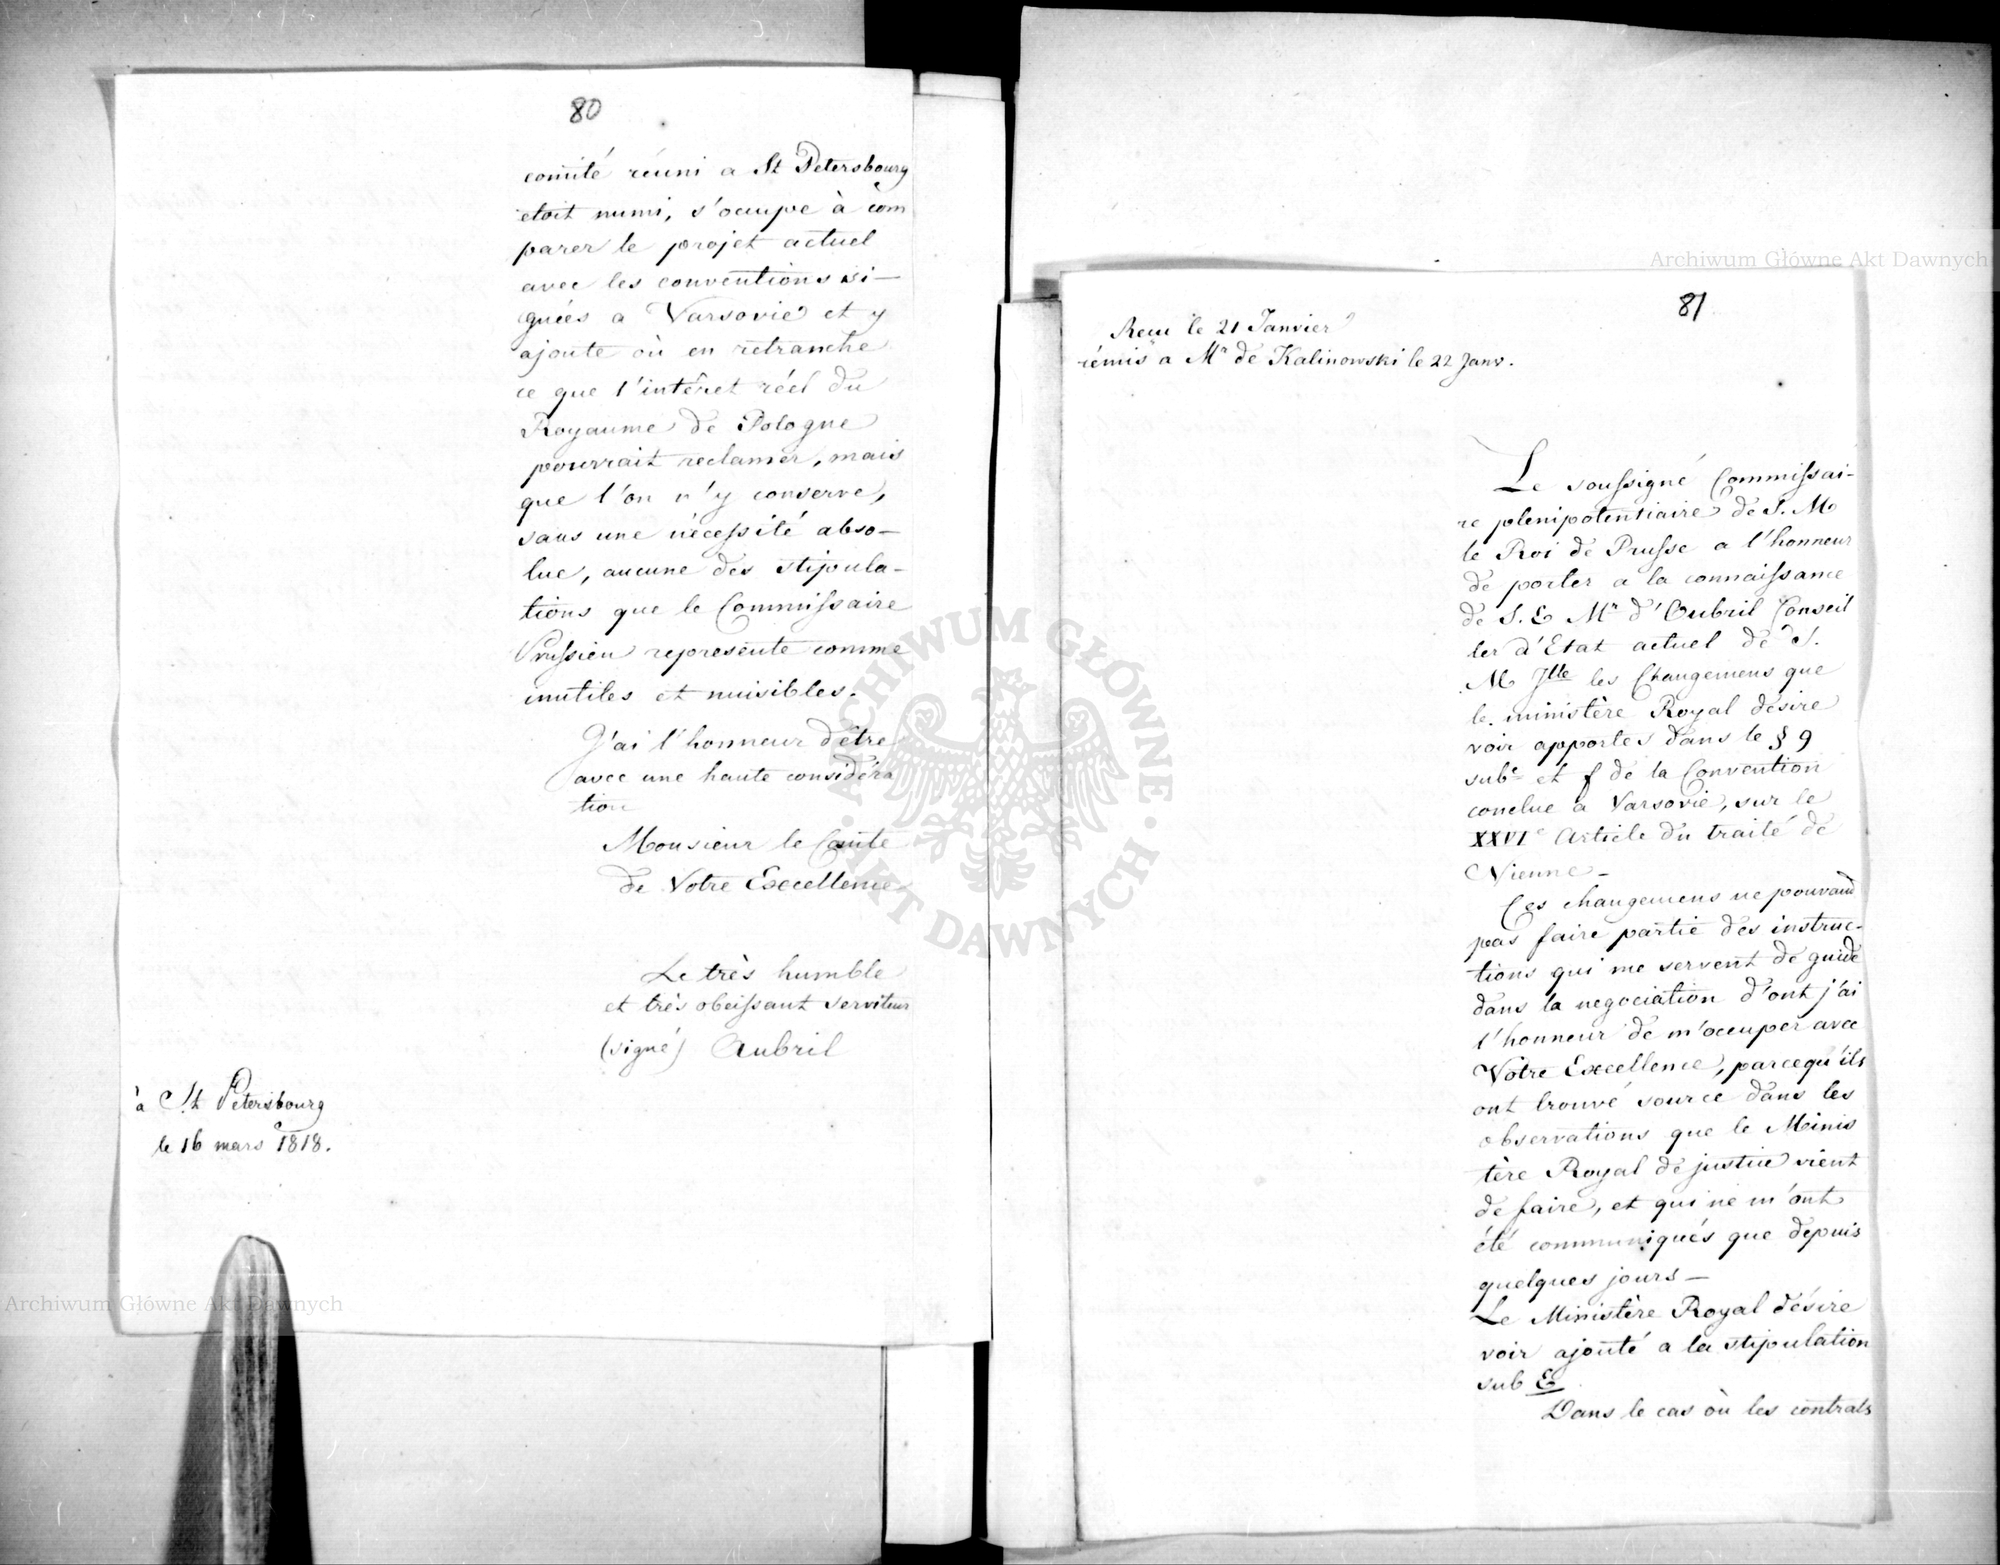 80
comité réuni a St Petersbourg
etoit muni, s'occupe à com
parer le projet actuel
avec les conventions si-
gnées a Varsovie et y
ajoute où en retranche
ce que l'intêret réel du
Royaume de Pologne
pourrait reclamer, mais
que l'on n'y conserve,
sans une nécessité abso-
lue, aucune des stipula-
tions que le Commissaire
Prussien represente comme
inutiles et nuisibles.
J'ai l'honneur d'être
avec une haute considéra
tion
Monsieur le Comte
de Votre Excellence
Le très humble
et très obeissant serviteur
(signé) Oubril
à St Petersbourg
le 16 mars 1818.
81
Recu le 21 Janvier
rémis a Mr de Kalinowski le 22 Janv.
Le soussigné Commissai-
re plenipotentiaire de S. M
le Roi de Prusse a l'honneur
de porter a la connaissance
de S. E Mr d'Oubril Conseil
ler d'Etat actuel de S.
M Jlle les Changemens que
le ministère Royal désire
voir apportés dans le § 9
sub e et f de la Convention
conclue à Varsovie, sur le
XXVIe Article du traité de
Vienne -
Ces changemens ne pouvand
pas faire partie des instruc-
tions qui me servent de guide
dans la negociation d'ont j'ai
l'honneur de m'occuper avec
Votre Excellence, parcequ'ils
ont trouvé source dans les
observations que le Minis
tère Royal de justice vient
de faire, et qui ne m'ont
été communiqués que depuis
quelques jours -
Le Ministère Royal désire
voir ajouté a la stipulation
sub E
Dans le cas où les contrats
Archiwum Główne Akt Dawnych
Archiwum Główne Akt Dawnych
ARCHIWUM GŁÓWNE · AKT DAWNYCH ·